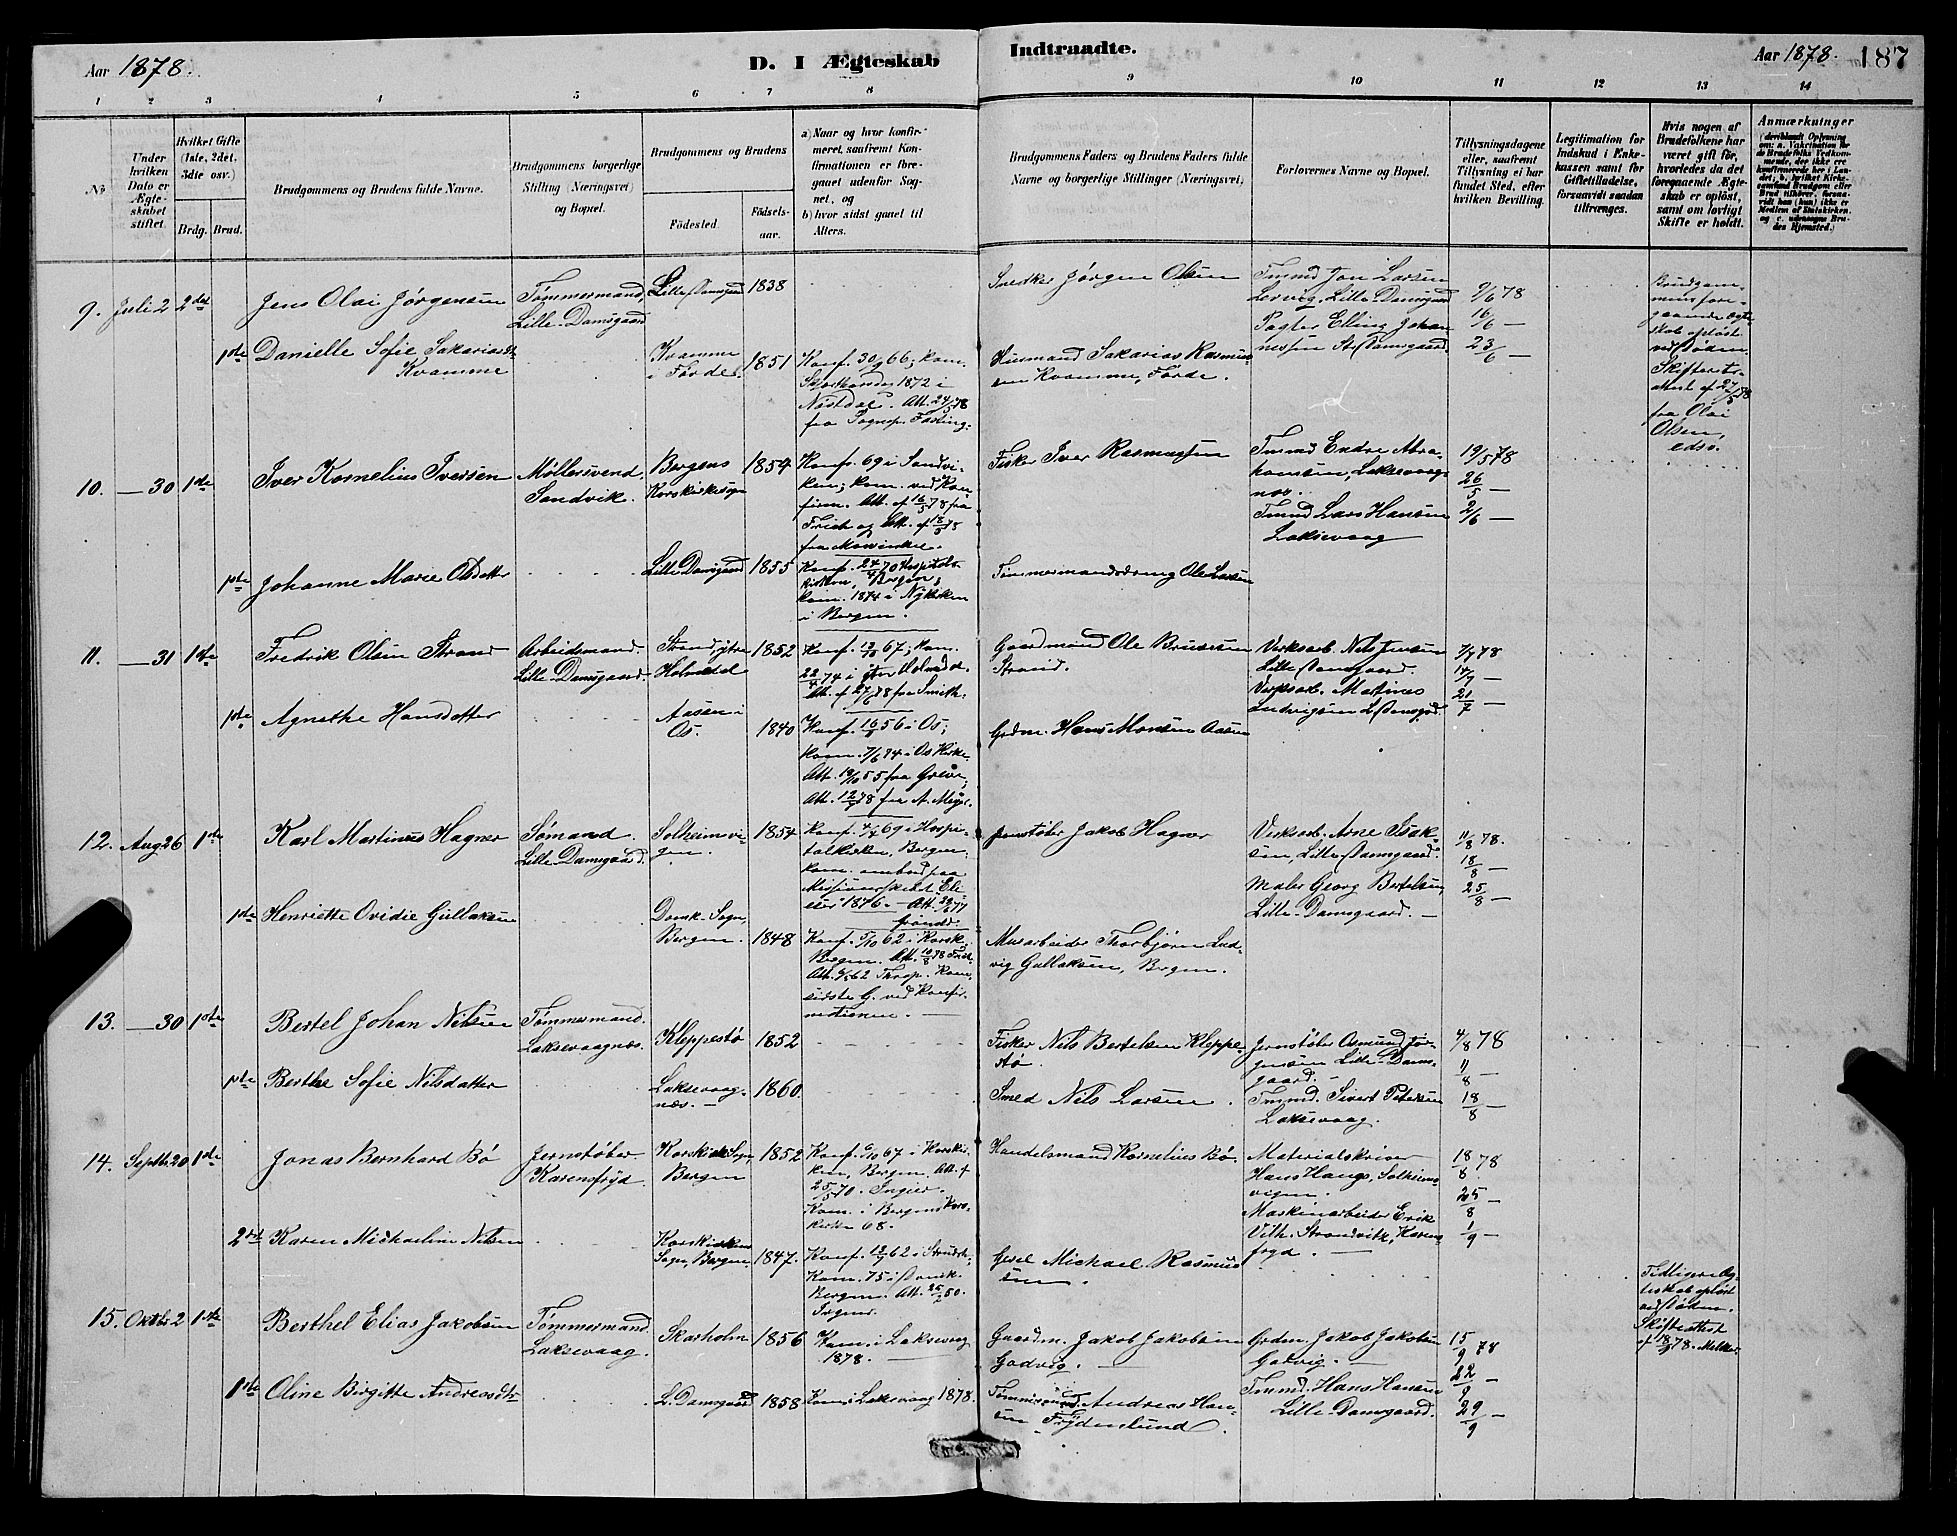 Aar 1878.
D. I Ægteskab
Indtraadte.
Aar 1878.
187
1 2 3 4 5 6 7 8 9 10 11 12 13 14
No
Under hvilken Dato er Ægteskabet stiftet.
Hvilket Gifte (1ste, 2det, 3dte osv.)
Brdg. Brud.
Brudgommens og Brudens fulde Navne.
Brudgommens borgerlige Stilling (Næringsvei) og Bopæl.
Brudgommens og Brudens
Fødested.
Fødselsaar.
a) Naar og hvor konfirmeret, saafremt Konfirmationen er foregaaet udenfor Sognet, og
b) hvor sidst gaaet til Alters.
Brudgommens Faders og Brudens Faders fulde Navne og borgerlige Stillinger (Næringsvei)
Forlovernes Navne og Bopæl.
Tillysningsdagene eller, saafremt Tillysning ei har fundet Sted, efter hvilken Bevilling.
Legitimation for Indskud i Enkekassen samt for Giftetilladelse, forsaavidt saadan tiltrænges.
Hvis nogen af Brudefolkene har været gift før, hvorledes da det foregaaende Ægteskab er opløst, samt om lovligt Skifte er holdt.
Anmærkninger
9. Juli 2 2det
Jens Olai Jørgensen
Tømmermand,
Lille Damsgaard
Lille Damsgaard 1838
Snedker Jørgen Olsen
Tmmd Jon Larsen
Lervig, Lille Damsgaard
Pagter Elling Johannessen St. Damsgaard.
9/6 78
16/6 —
23/6 —
Brudgommens foregaaende Ægteskab opløst ved Døden. Skifterets attest af 27/5 78 fra Olai Olsen, edsv.
1ste Danielle Sofie Sakariasdtr
Kvamme
Kvamme
i Førde.
1851
Konf. 30/9 66; kom.
1872 i
Att. 24/5 78
fra Sognep. Fasting.
Husmand Sakarias Rasmussen Kvamme, Førde.
10. — 30 1ste
Iver Kornelius Iversen
Møllersvend
Sandvik.
Bergens
Korskirkesogn
1854
Konf. 69 i Sandviken; kom. ved Konfirm. Att. af 16/5 78 fra
Friest og Att. af
fra Mowinckel.
Fisker Iver Rasmussen
Tmmd Endre Abrahamsen, Laksevaagnæs.
Tmmd Lars Hansen
Laksevaag
19/5 78
26/5 —
2/6 —
1ste Johanne Marie Olsdatter
Lille Damsgaard 1855
Konf. 24/4 70 Hospitalskirken, Bergen;
kom. 1874 i Nykirken
i Bergen.
Tømmermandsdreng Ole Larsen
11. — 31 1ste
Fredrik Olsen Strand
Arbeidsmand.
Lille Damsgaard.
Strand, ytre
Holmedal
1852
Konf. 67; kom.
22/4 74 i ytre Holmedal.
Att. af 27/6 78 fra Smith.
Gaardmand Ole
Strand.
Verksarb. Nils Jensen
Lille Damsgaard.
Verksarb. Martinus
Ludvigsen L. Damsgrd.
7/7 78
14/7 —
21/7 —
1ste Agnethe Hansdatter
Aasen i
Os.
1840
Konf. 56 i Os;
kom. 7/6 74 i Os Kirke.
Att. 19/10 55 fra Greve;
Att. 12/7 78 fra A.
Grdm. Hans Monsen Aasen
12. Aug 26 1ste
Karl Martinus Hagner
Sømand.
Lille Damsgaard.
Solheimsvigen.
1854
Konf. 4/4 69 i Hospitalkirken, Bergen;
kom. ombord paa
Missionsskibet Elieser 1876. — Att. 77
Jernstøber Jakob Hagner
Verksarb. Arne Isaksen, Lille Damsgaard.
Maler Georg Bertelsen,
Lille Damsgaard. —
11/8 78.
18/8 —
25/8 —
1ste Henriette Ovidie Gullaksen
Domk. Sogn,
Bergen.
1848
Konf. 5/10 62 i Korsk.
Bergen. Att. 10/8 78
sidste G. ved Konfirmationen.
Murarbeider Thorbjørn Ludvig Gullaksen, Bergen.
13. — 30 1ste
Bertel Johan Nilsen
Tømmermand.
Laksevaagnæs.
Kleppestø 1852
Fisker Nils Bertelsen Kleppestø.
Jernstøber Osmund Jørgensen Lille Damsgaard.
Tmmd. Sivert Petersen
Laksevaag.
4/8 78
11/8 —
18/8 —
1ste Berthe Sofie Nilsdatter
Laksevaagnæs. —
1860
Smed Nils Larsen
14. Septb. 20 1ste
Jonas Bernhard Bø
Jernstøber
Karensfryd.
Korskirkesogn,
Bergen
1852
Konf. 6/10 67 i Korskirken, Bergen. Att. af
25/5 70. Ingier.
Kom. i Bergens Korskirke 68.
Handelsmand Kornelius Bø.
Materialskriver
Hans Hauge, Solheimsvigen.
Maskinarbeider Erik
Vilh. Strandvik, Karensfryd.
18/8 78
25/8 —
1/9 —
2det Karen Michaeline Nilsen
Korskirkens
Sogn, Bergen
1847.
Konf. 62 i
Kom. 75 i Domk.
Bergen. Att.
Michael Rasmussen.
Tidligere Ægteskab opløst
ved Døden.
Skifteattest
af 78.
15. Oktbr. 2 1ste
Berthel Elias Jakobsen
Tømmermand.
Laksevaag.
Skarholm 1856
Kom. i Laksevaag
1878. —
Gaardm. Jakob Jakobsen
Godvig. —
Grdm. Jakob Jakobsen
Godvig. —
Tmmd. Hans Hansen
Lille Damsgaard.
15/9 78
22/9 —
29/9 —
1ste Oline Birgitte Andreasdtr
L. Damsgaard 1858
Kom. i Laksevaag 1878.
Tømmermand. Andreas Hansen Frydenlund.